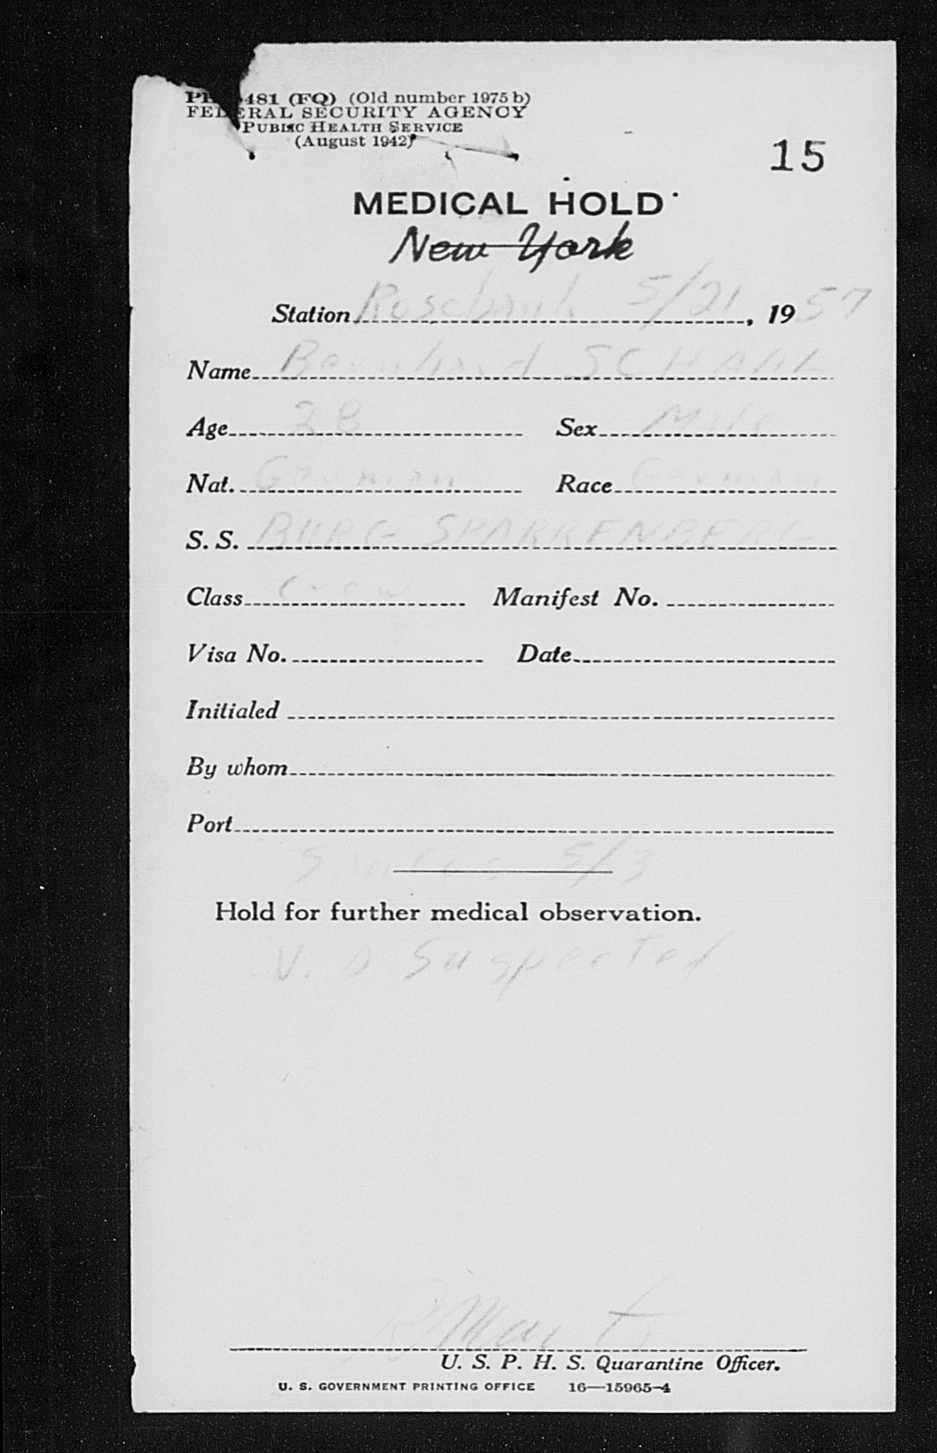 481 (FQ) (Old number 1975 b)
FEDERAL SECURITY AGENCY
PUBLIC HEALTH SERVICE
(August 1942)
15
MEDICAL HOLD
New York
Station Rosebank 5/21, 1957
Name Bernhard SCHAAL
Age 28 Sex Male
Nat. German Race German
S. S. BURG SPARRENBERG
Class Crew Manifest No.
Visa No. Date
Initialed
By whom
Port
5/3
Hold for further medical observation.
V. D Suspected
U. S. P. H. S. Quarantine Officer.
U. S. GOVERNMENT PRINTING OFFICE 16—15965-4